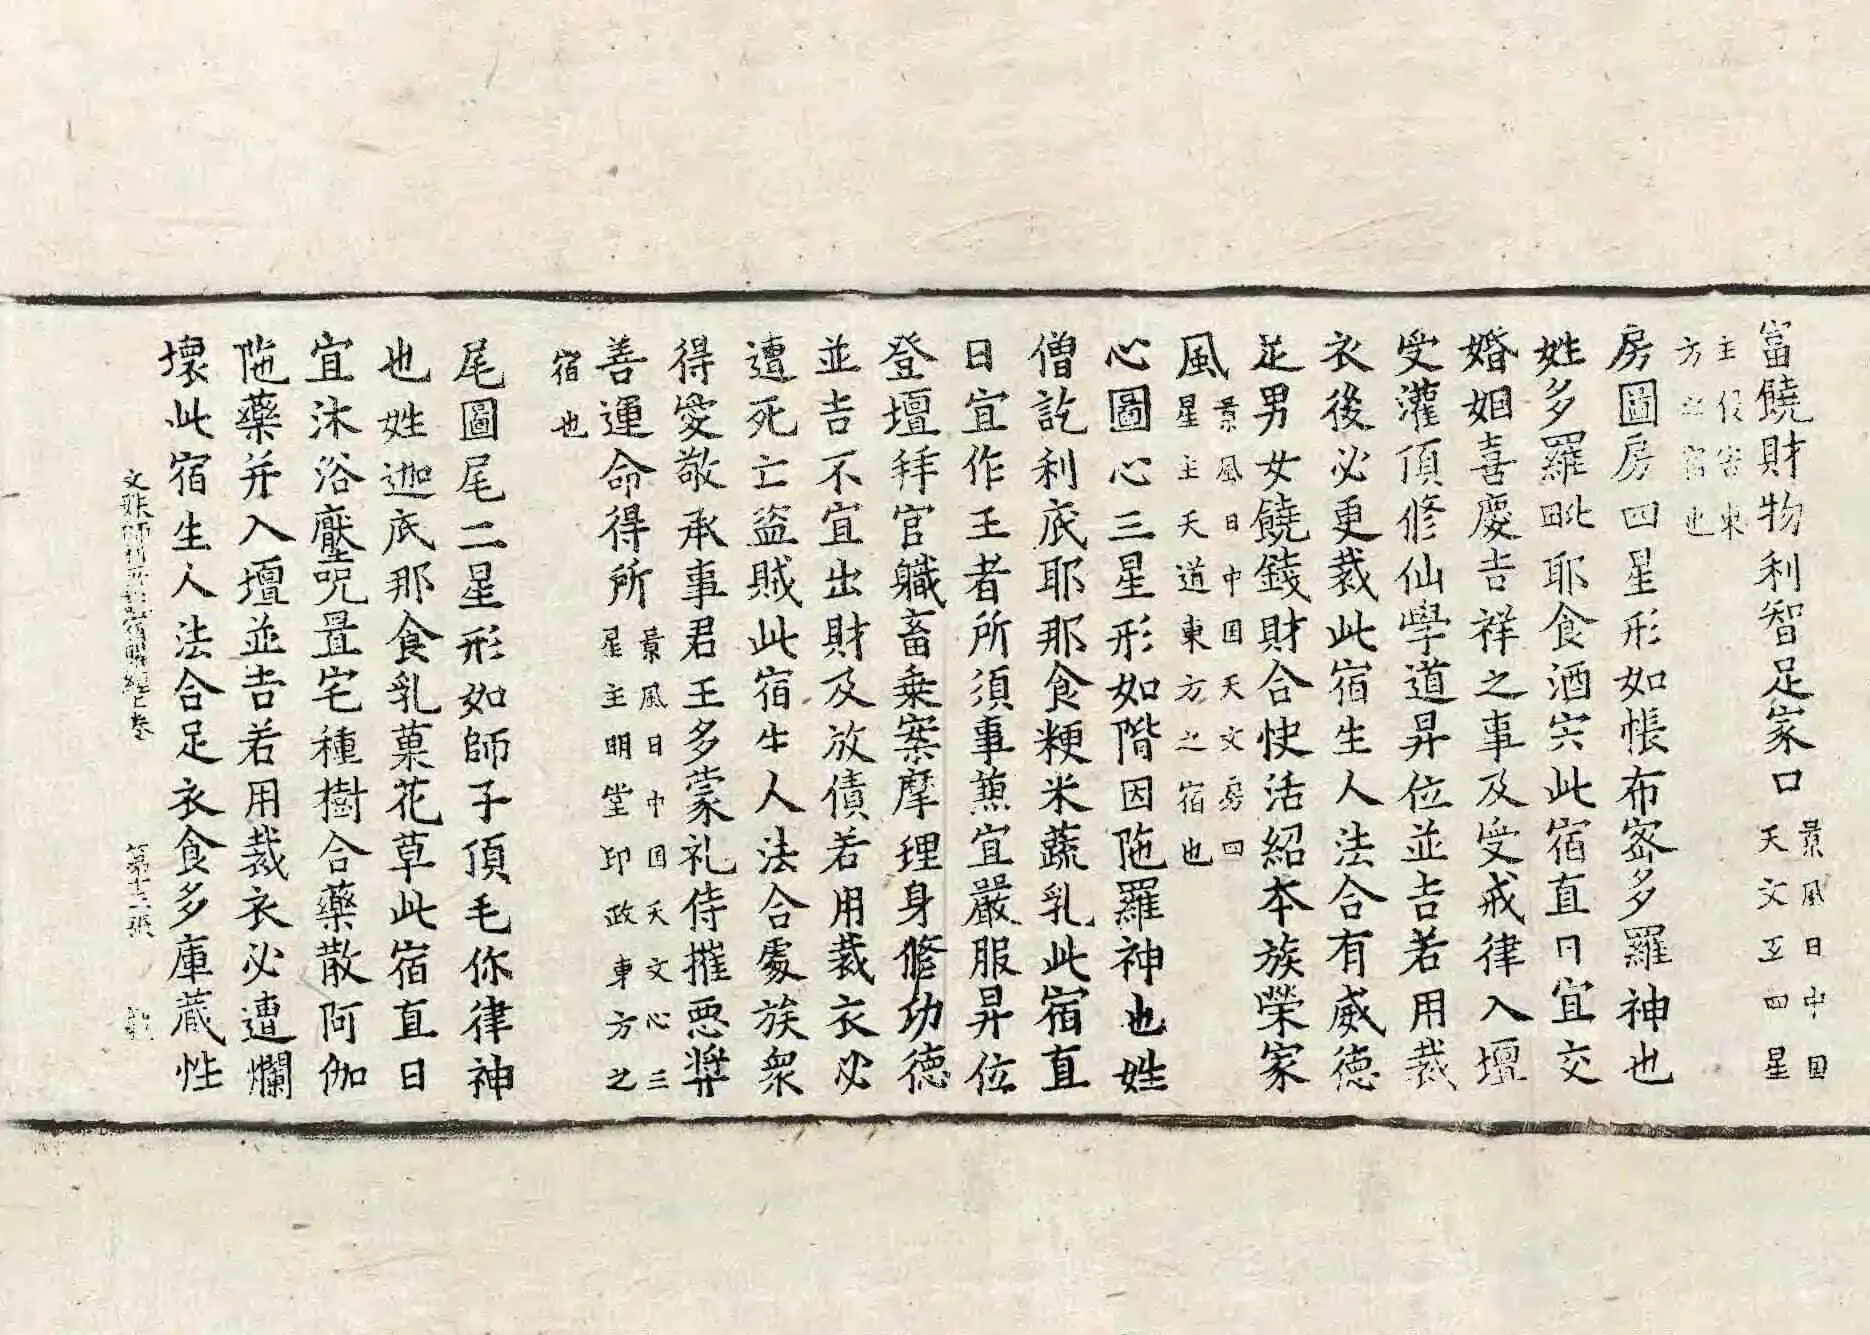 富饒財物利智足家口景風日中国天文氐四星
主後宮東方之宿也
房圖房四星形如帳布密多羅神也
姓多羅毗耶食酒宍此宿直日宜交
婚姻喜慶吉祥之事及受戒律入壇
受灌頂修仙學道昇位並吉若用裁
衣後必更裁此宿生人法合有威德
足男女饒錢財合快活紹本族榮家
風景風日中国天文房四星主天道東方之宿也
心圖心三星形如階因陁羅神也姓
僧訖利底耶那食粳米蔬乳此宿直
日宜作王者所須事蕙宜嚴服昇位
登壇拜官職畜乗案摩理身修功德
並吉不宜出財及放債若用裁衣必
遭死亡盜賊此宿生人法合處族衆
得愛敬承事君王多蒙礼侍摧惡獎
善運命得所景風日中国天文心三星主明堂印政東方之
宿也
尾圖尾二星形如師子頂毛你律神
也姓迦底那食乳菓花草此宿直日
宜沐浴壓呪置宅種樹合藥散阿伽
陁藥并入壇並吉若用裁衣必遭爛
壞此宿生人法合足衣食多庫藏性
文殊師利宿曜經上卷 第十三張